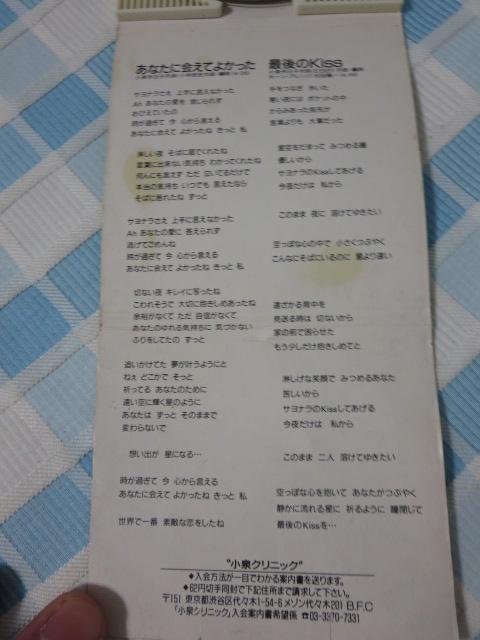 あなたに会えてよかった
サヨナラさえ 上手に言えなかった
Ah あなたの愛を 信じられず
おびえていたの
時が過ぎて 今 心から言える
あなたに会えて よかったね きっと 私
淋しい夜 そばに居てくれたね
言葉に出来ない気持ち わかってくれたね
何んにも言えず ただ 泣いてるだけで
本当の気持ち いつでも 言えたなら
そばに居れたね ずっと
サヨナラさえ 上手に言えなかった
Ah あなたの愛に 答えられず
逃げてごめんね
時が過ぎて 今 心から言える
あなたに会えて よかったね きっと 私
切ない夜 キレイに写ったね
こわれそうで 大切に抱きしめあったね
余裕がなくて ただ 自信がなくて
あなたのゆれる気持ちに 気づかない
ふりをしてたの ずっと
追いかけてた 夢が叶うようにと
ねぇ どこかで そっと
祈ってる あなたのために
遠い空に輝く星のように
あなたは ずっと そのままで
変わらないで
想い出が 星になる…
時が過ぎて 今 心から言える
あなたに会えて よかったね きっと 私
世界で一番 素敵な恋をしたね
最後のKiss
手をつなぎ 歩いた
寒い夜には ポケットの中
からみあった指先が
言葉よりも 大事だった
星空もだまって みつめる瞳
優しいから
サヨナラのKissしてあげる
今夜だけは 私から
このまま 夜に 溶けてゆきたい
空っぽな心の中で 小さくつぶやく
こんなにそばにいるのに 星より遠い
遠ざかる背中を
見送る時は 切ないから
家の前で困らせた
もう少しだけ抱きしめてと
淋しげな笑顔で みつめるあなた
苦しいから
サヨナラのKissしてあげる
今夜だけは 私から
このまま 二人 溶けてゆきたい
空っぽな心を抱いて あなたがつぶやく
静かに流れる星に 祈るように 瞳閉じて
最後のKissを…
"小泉クリニック"
◆入会方法が一目でわかる案内書を送ります。
◆62円切手同封で下記住所まで請求して下さい。
〒151 東京都渋谷区代々木1-54-6 メゾン代々木201 B.F.C
「小泉クリニック」入会案内書希望係 ☎03-3370-7331